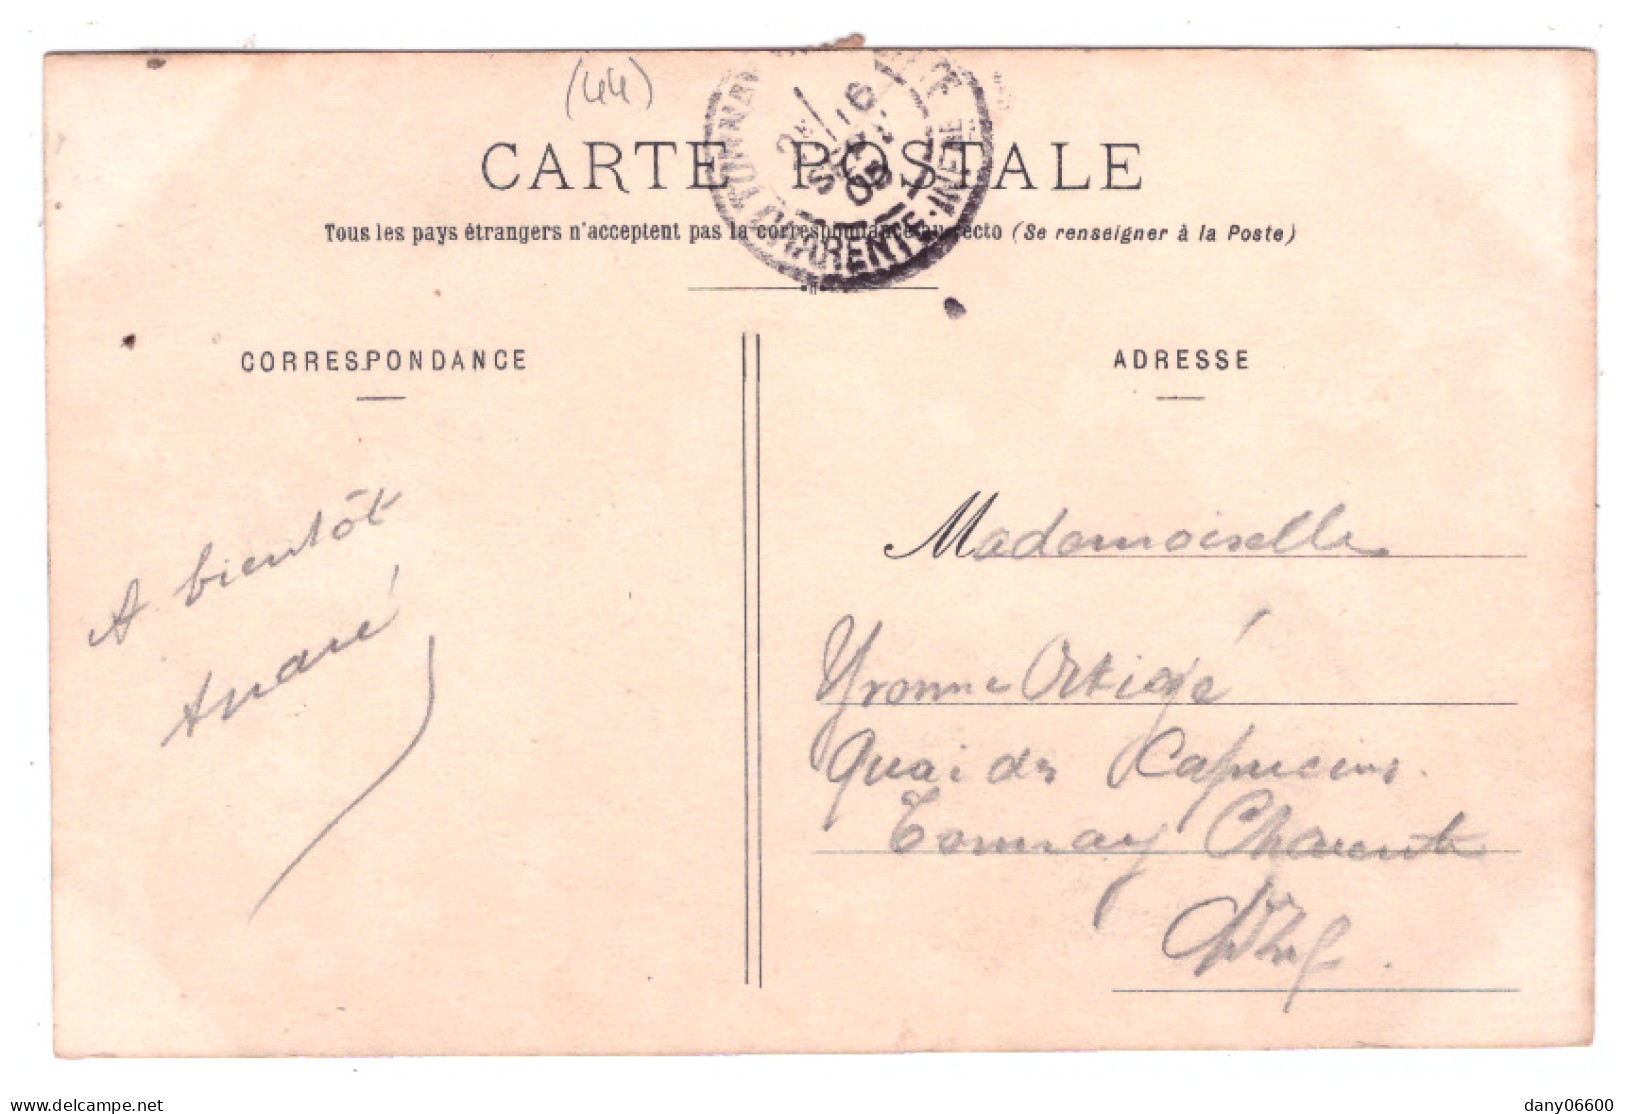 (44)
CARTE POSTALE
Tous les pays étrangers n'acceptent pas la correspondance au recto (Se renseigner à la Poste)
TONNAY CHARENTE
CHARENTE-INFRE
2E
16
05
CORRESPONDANCE
A bientôt
André
ADRESSE
Mademoiselle
Yvonne Ortigé
Quai des Capucins.
Tonnay Charente
Ch Inf.
www.delcampe.net
dany06600